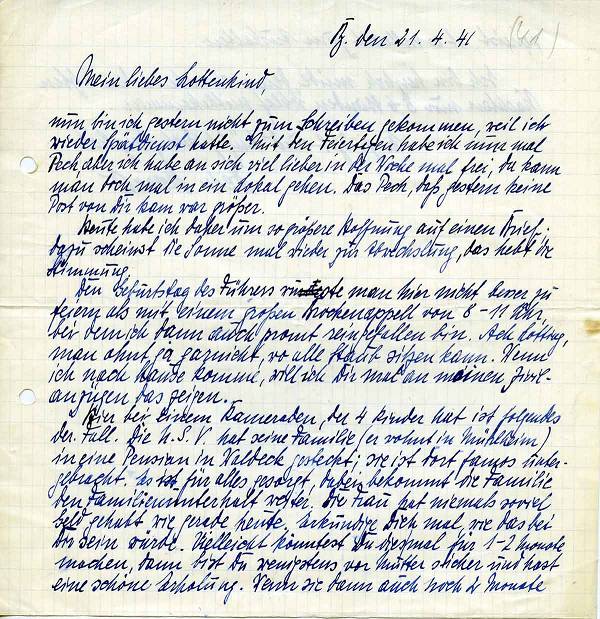 Bz. den 21. 4. 41
Mein liebes Lottenkind,
nun bin ich gestern nicht zum Schreiben gekommen, weil ich
wieder Spätdienst hatte. Mit den Feiertagen habe ich nun mal
Pech, aber ich habe an sich viel lieber in der Woche mal frei, da kann
man doch mal in ein Lokal gehen. Das Pech, daß gestern keine
Post von Dir kam war größer.
Heute habe ich daher um so größere Hoffnung auf einen Brief;
dazu scheinst die Sonne mal wieder zur Abwechslung, das hebt die
Stimmung.
Den Geburtstag des Führers wußte man hier nicht besser zu
feiern als mit einem großen Knochenappell von 8 - 11 Uhr,
bei dem ich dann auch promt reingefallen bin. Ach Götting,
man ahnt ja garnicht, wo alle Staub sitzen kann. Wenn
ich nach Hause komme, will ich Dir mal an meinen Zivil-
anzügen das zeigen.
Hier bei einem Kameraden, der 4 Kinder hat ist folgendes
der Fall. Die N.S.V. hat seine Familie (er wohnt in Mühlheim)
in eine Pension in Waldeck gesteckt; sie ist dort famos unter-
gebracht, es ist für alles gesorgt, dabei bekommt die Familie
den Familienunterhalt weiter. Die Frau hat niemals soviel
Geld gehabt wie gerade heute. Erkundige Dich mal, wie das bei
Dir sein würde. Vielleicht könntest Du dies mal für 1-2 Monate
machen, dann bist Du wenigstens vor Mutter sicher und hast
eine schöne Erholung. Wenn sie dann auch noch 2 Monate